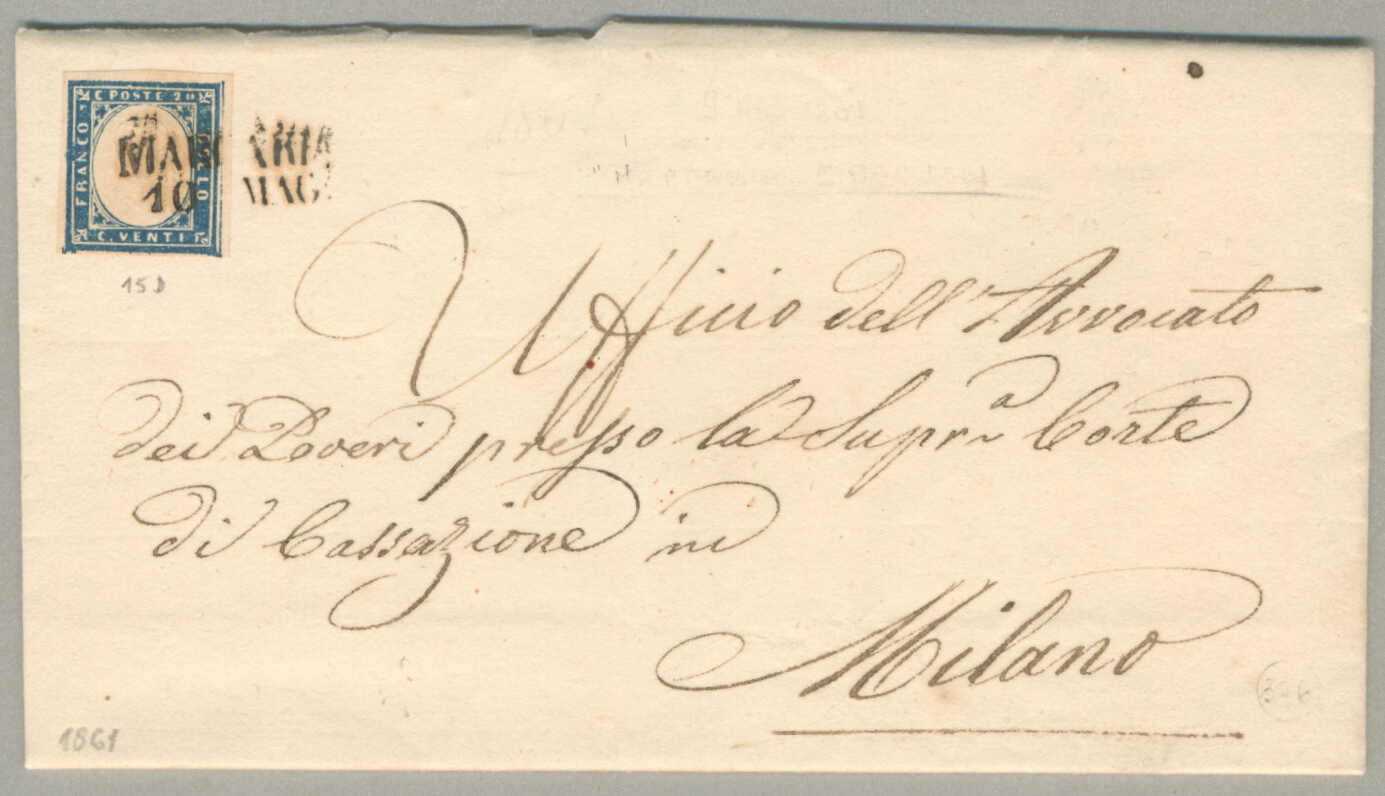 C POSTE 20
FRANCO
BOLLO
C. VENTI
10 MAG
15 D
Ufficio dell'Avvocato
dei Poveri presso la Supr.a Corte
di Cassazione in
Milano
1861